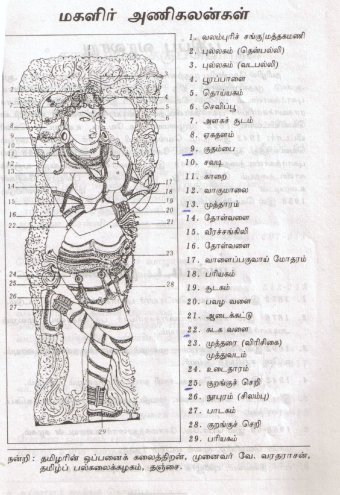 மகளிர் அணிகலன்கள்
1. வலம்புரிச் சங்கு/மத்தகமணி
2. புல்லகம் (தென்பல்லி)
3. புல்லகம் (வடபல்லி)
4. பூரப்பாளை
5. தொய்யகம்
6. செவிப்பூ
7. அளகச் சூடம்
8. ஏகதளம்
9. குதம்பை
10. சவடி
11. காறை
12. வாகுமாலை
13. முத்தாரம்
14. தோள்வளை
15. வீரச்சங்கிலி
16. தோள்வளை
17. வாளைப்பகுவாய் மோதரம்
18. பரியகம்
19. சூடகம்
20. பவழ வளை
21. ஆடைக்கட்டு
22. கடக வளை
23. முத்தரை (விரிசிகை)
முத்துவடம்
24. உடைதாரம்
25. குறங்குச் செறி
26. நூபுரம் (சிலம்பு)
27. பாடகம்
28. குறங்குச் செறி
29. பரியகம்
1
2
3
4
5
6
7
8
9
10
11
12
13
14
15
16
17
18
19
20
21
22
23
24
25
26
27
28
29
நன்றி : தமிழரின் ஒப்பனைக் கலைத்திறன், முனைவர் வே. வரதராசன்,
தமிழ்ப் பல்கலைக்கழகம், தஞ்சை.